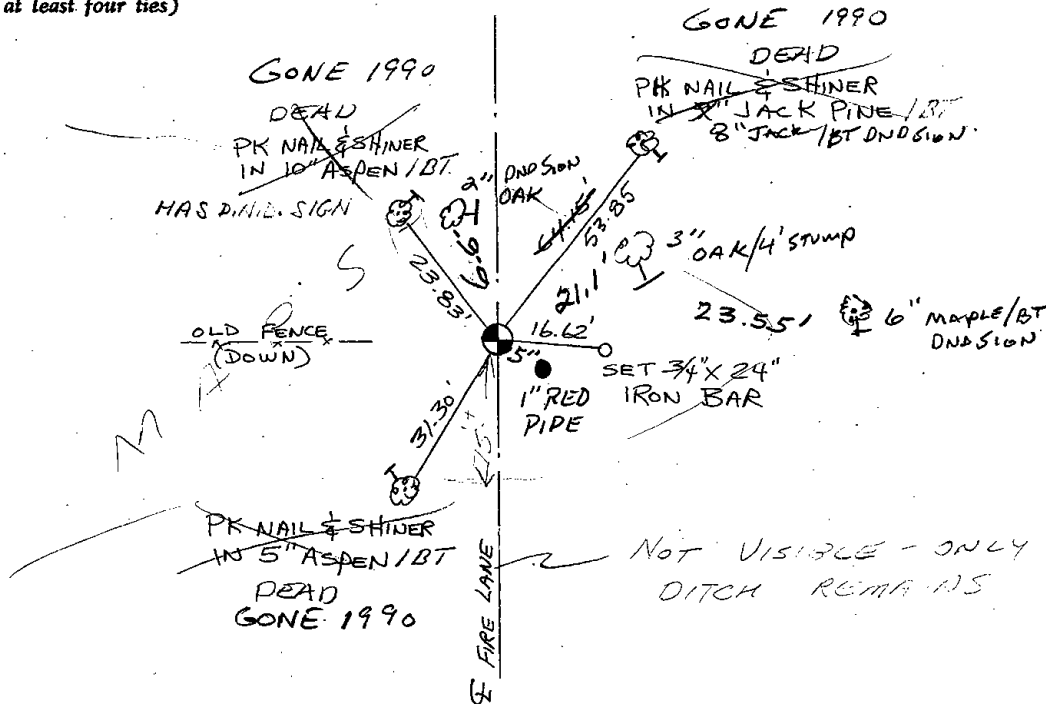 at least four ties)
GONE 1990
DEAD
PK NAIL & SHINER
IN 10" ASPEN / BT.
HAS D.N.D. SIGN
GONE 1990
DEAD
PK NAIL & SHINER
IN JACK PINE / BT
8" JACK / BT DND SIGN.
2" DND SIGN
OAK
64.15'
53.85
23.83'
9.9
3" OAK/4' STUMP
21.1'
23.55'
6" MAPLE/BT
DND SIGN
OLD FENCE
(DOWN)
16.62'
SET 3/4" X 24"
IRON BAR
5"
1" RED
PIPE
MARSH
31.30'
PK NAIL & SHINER
IN 5" ASPEN / BT
DEAD
GONE 1990
℄ FIRE LANE
NOT VISIBLE - ONLY
DITCH REMAINS